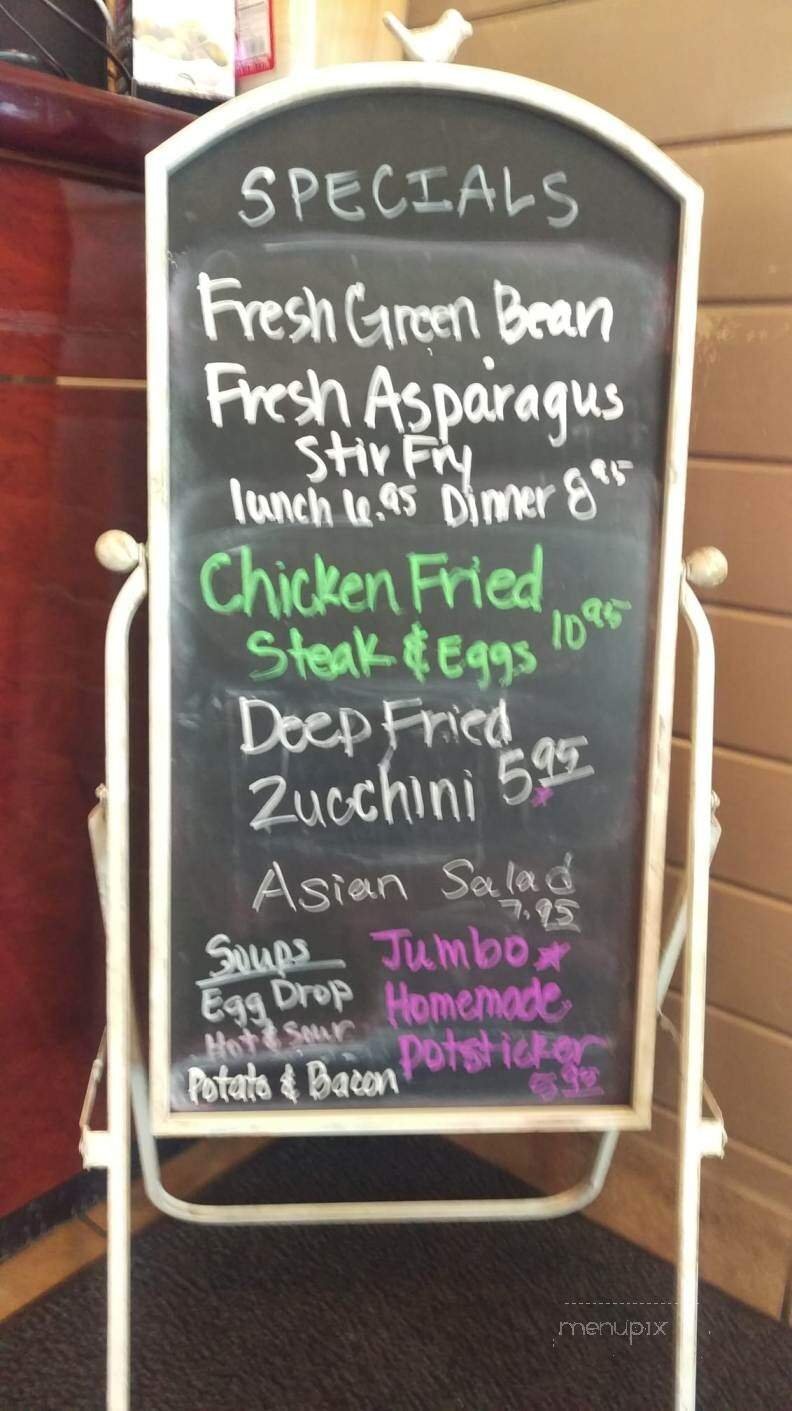 SPECIALS
Fresh Green Bean
Fresh Asparagus
Stir Fry
lunch 6.95 Dinner 8 95
Chicken Fried
Steak & Eggs 10 95
Deep Fried
Zucchini 5 95
Asian Salad
7.95
Soups
Egg Drop
Hot & Sour
Potato & Bacon
Jumbo
Homemade
Potsticker
5 95
menupix